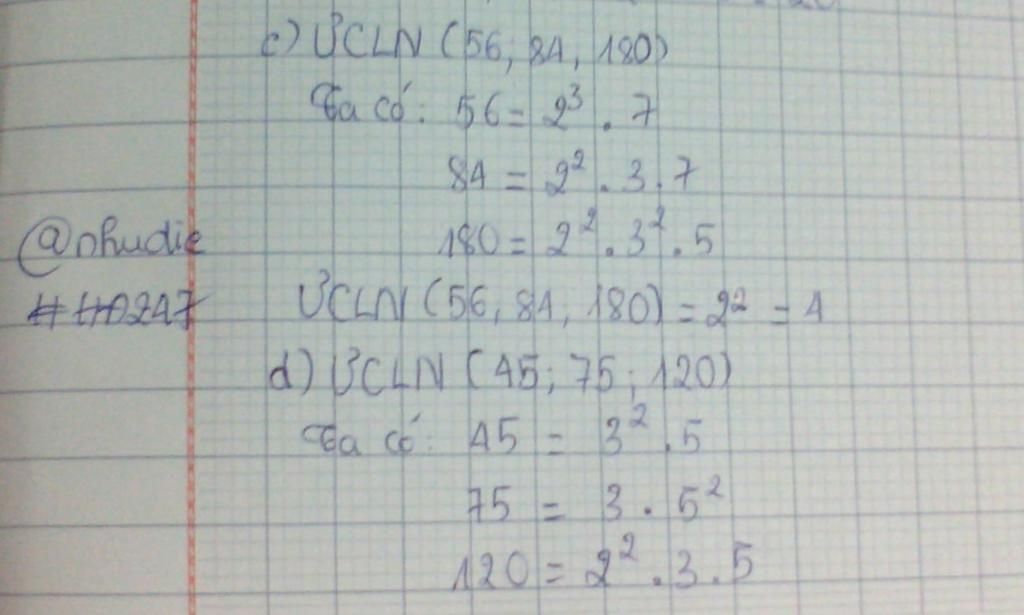 c) ƯCLN (56, 84, 180)
Ta có: 56 = 2³ . 7
84 = 2² . 3 . 7
@nhudie
180 = 2² . 3² . 5
ƯCLN (56, 84, 180) = 2² = 4
d) ƯCLN (45; 75; 120)
Ta có: 45 = 3² . 5
75 = 3 . 5²
120 = 2² . 3 . 5